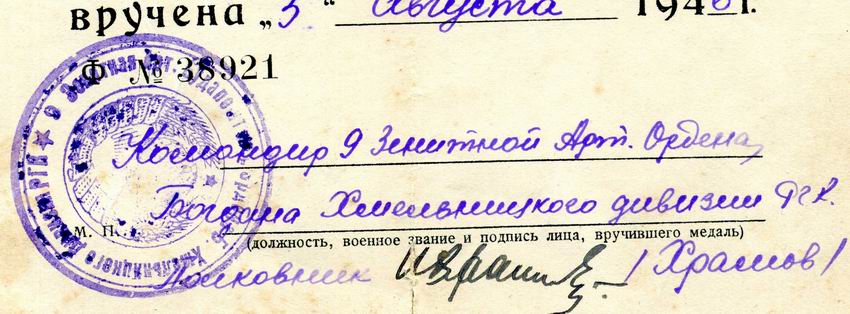 вручена „5“ Августа 1946 г.
Ф № 38921
Командир 9 Зенитной Арт. Ордена
Богдана Хмельницкого дивизии РГК.
М. П.
(должность, военное звание и подпись лица, вручившего медаль)
Полковник /Храмов/